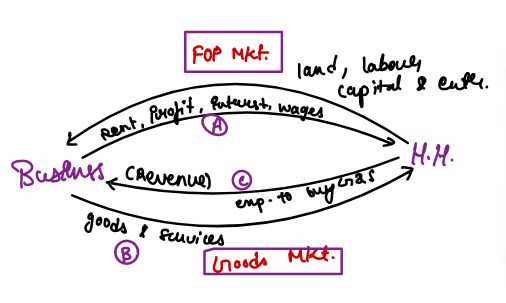 FOP Mkt.
land, labour,
capital & entr.
Rent, Profit, Interest, wages
A
Business
H.H.
(Revenue)
C
exp. to buy G&S
goods & services
B
Goods Mkt.